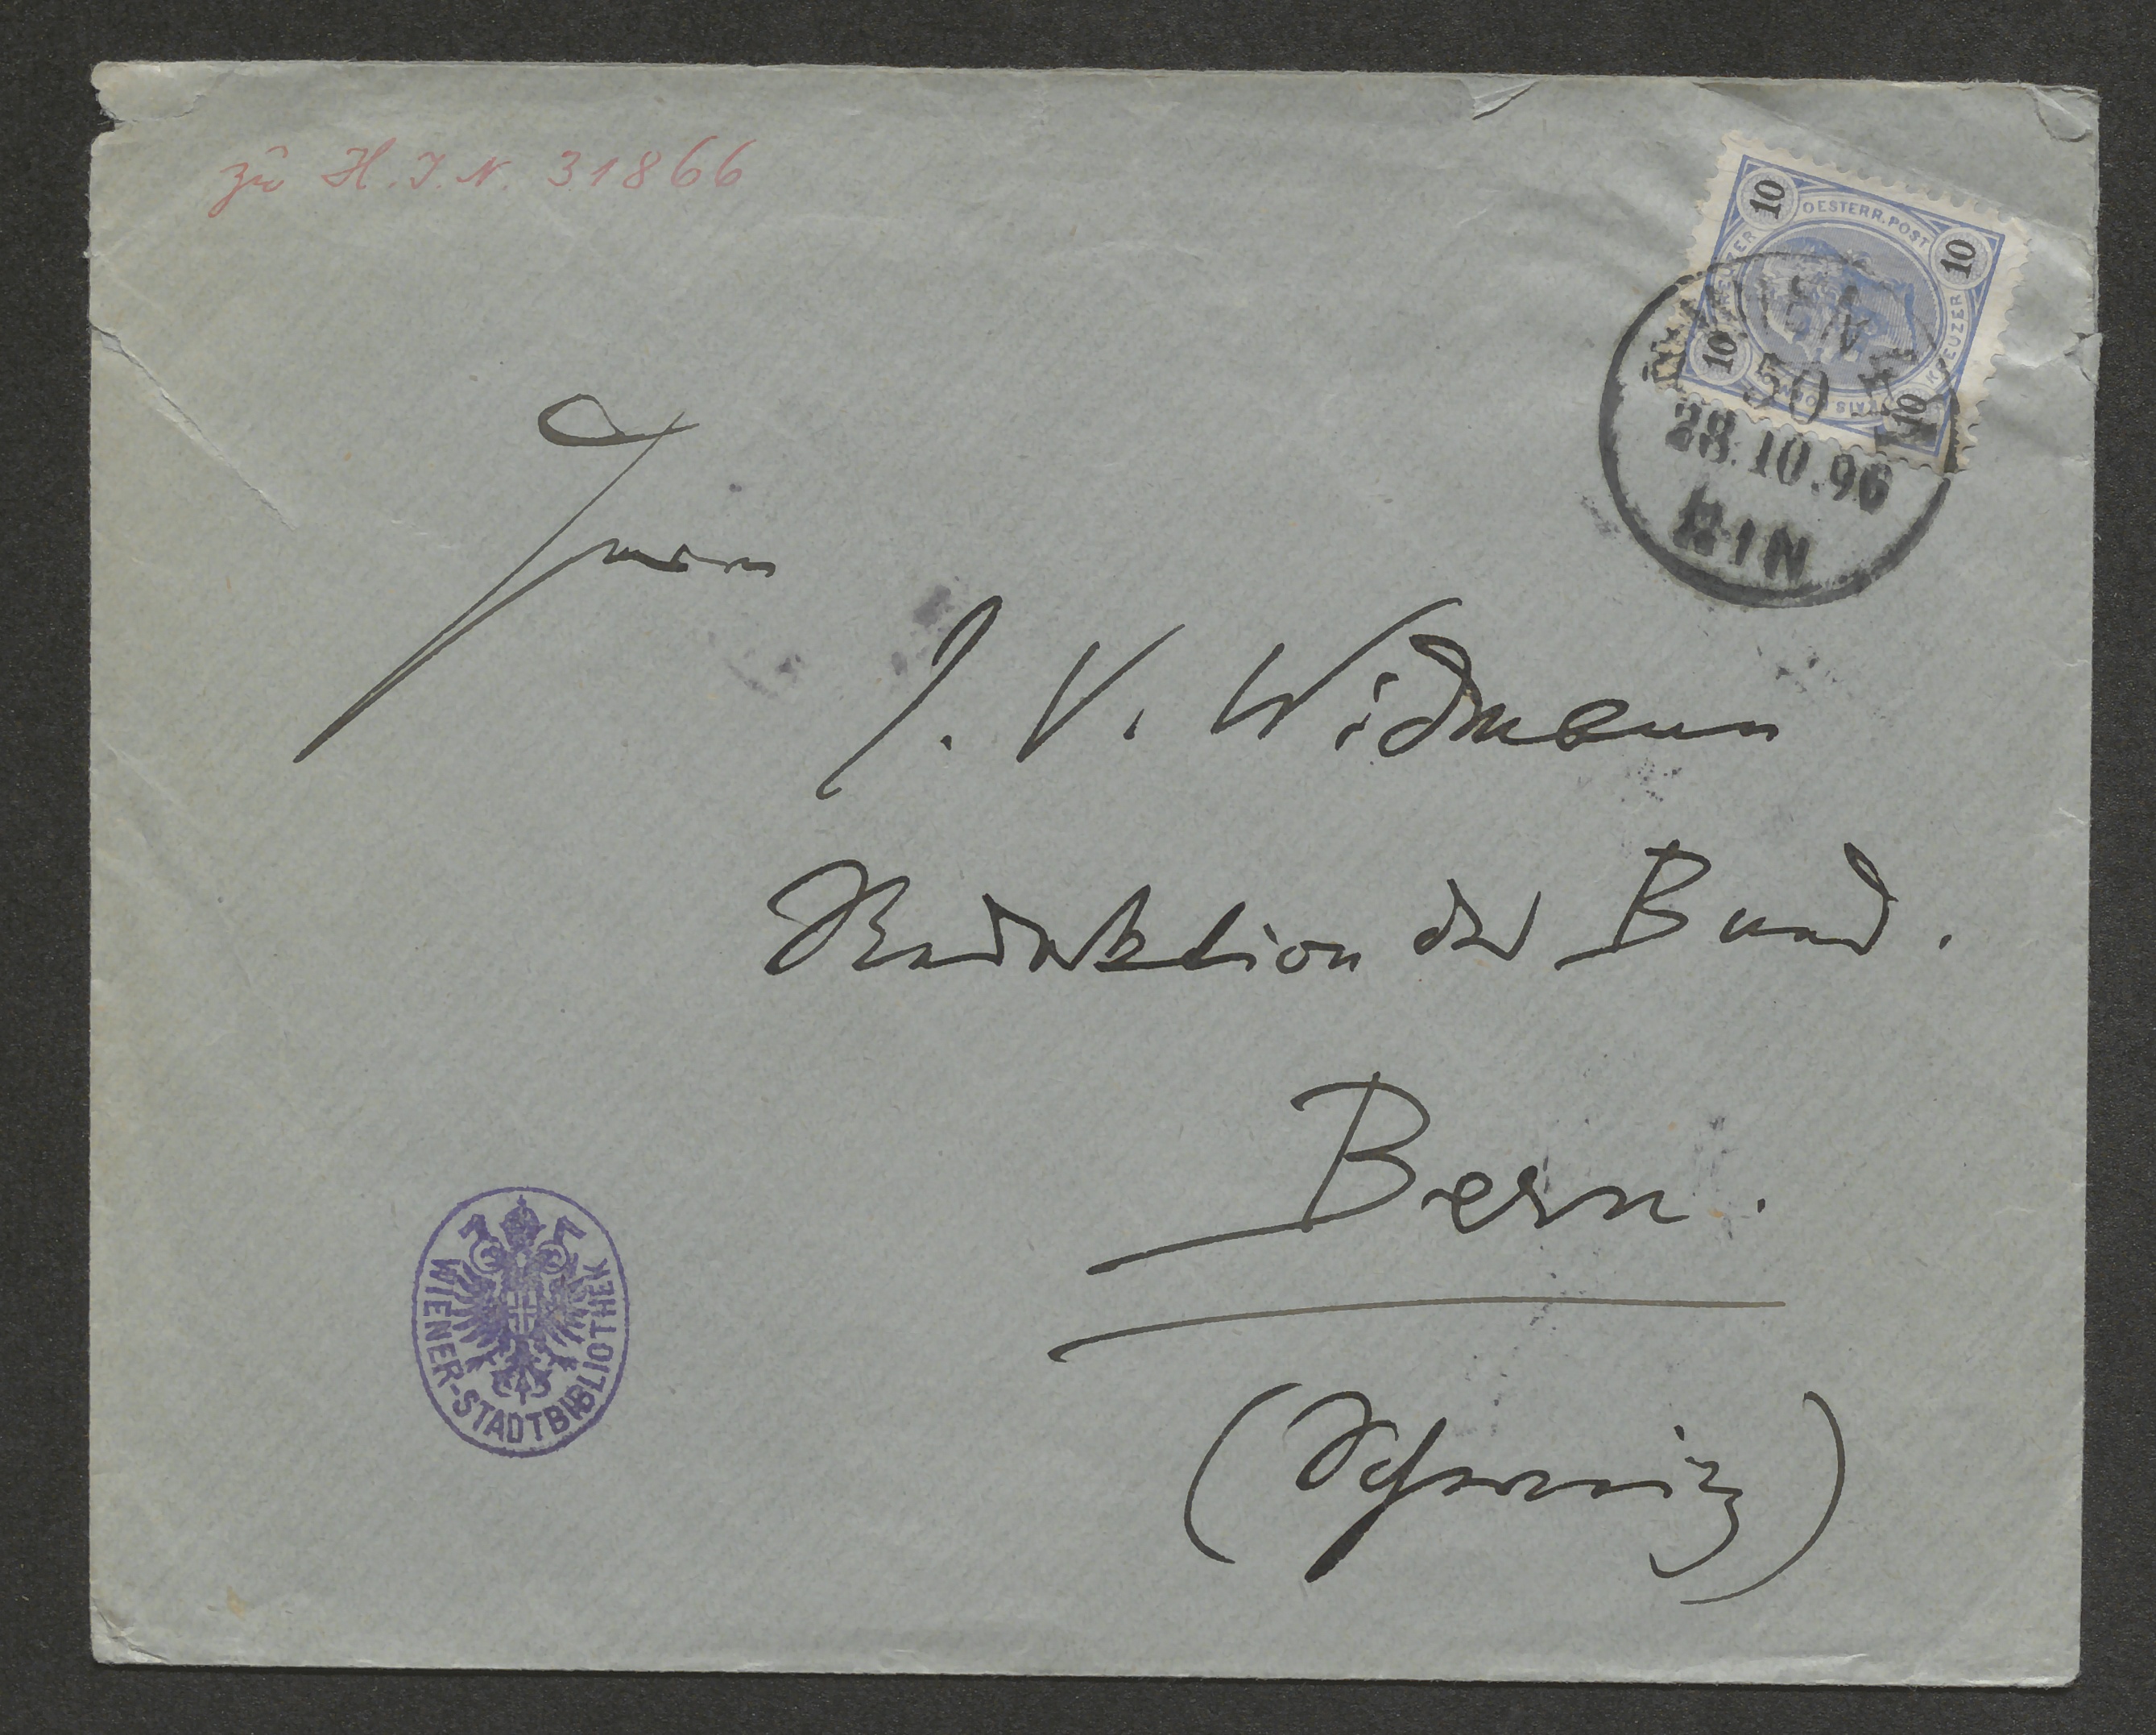 zu H.I.N. 31866
10 OESTERR. POST 10
KREUZER KREUZER
10 10
WIEN
50
28.10.96
Herrn
J. V. Widmann
Redaktion des Bund.
Bern.
(Schweiz)
WIENER-STADTBIBLIOTHEK